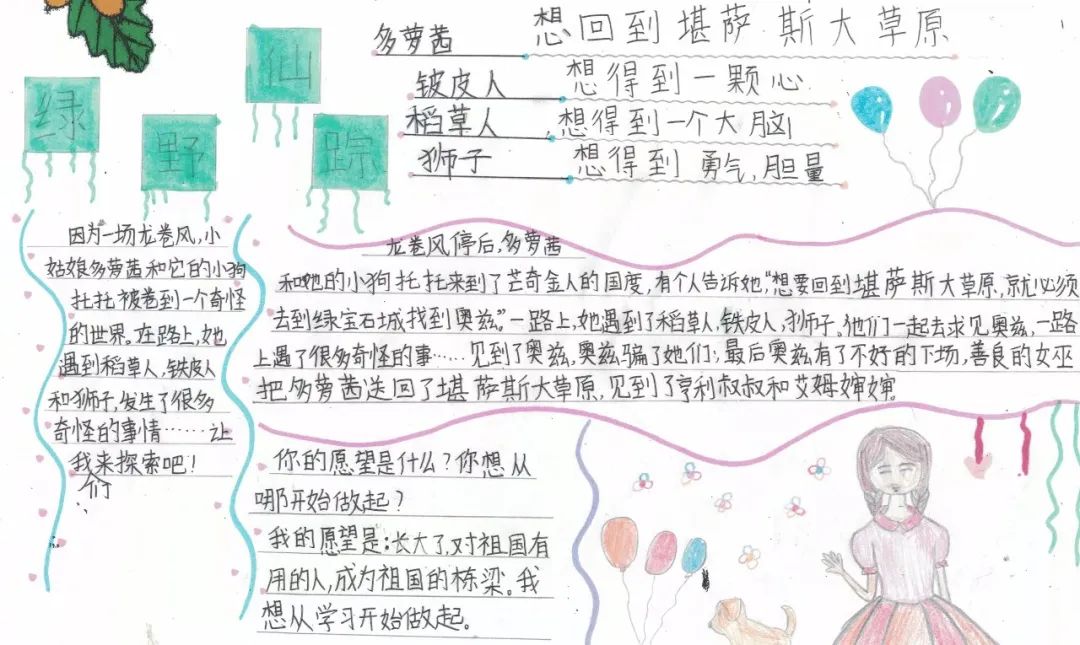 绿野仙踪
多萝茜 想回到堪萨斯大草原
铍皮人 想得到一颗心
稻草人,想得到一个大脑
狮子 想得到勇气,胆量
因为一场龙卷风,小
姑娘多萝茜和它的小狗
托托被卷到一个奇怪
的世界。在路上,她
遇到稻草人,铁皮人
和狮子,发生了很多
奇怪的事情……让
我来探索吧!
们
龙卷风停后,多萝茜
和她的小狗托托来到了芒奇金人的国度,有个人告诉她,“想要回到堪萨斯大草原,就必须
去到绿宝石城找到奥兹。”一路上,她遇到了稻草人,铁皮人,狮子。他们一起去求见奥兹,一路
上遇了很多奇怪的事……见到了奥兹,奥兹骗了她们,最后奥兹有了不好的下场,善良的女巫
把多萝茜送回了堪萨斯大草原,见到了亨利叔叔和艾姆婶婶。
你的愿望是什么?你想从
哪开始做起?
我的愿望是:长大了,对祖国有
用的人,成为祖国的栋梁。我
想从学习开始做起。